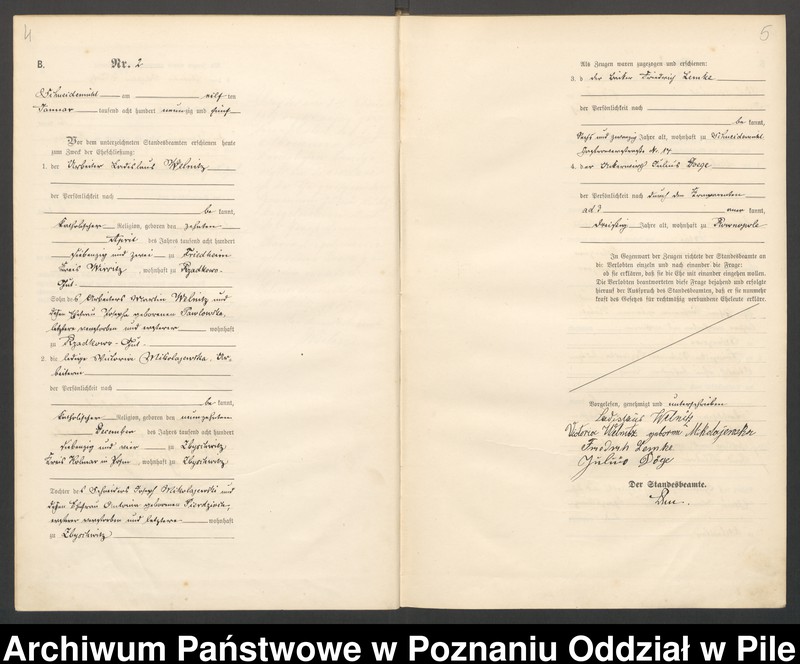 4
B. Nr. 2
Schneidemühl am elf ten
Januar tausend acht hundert neunzig und fünf
Vor dem unterzeichneten Standesbeamten erschienen heute
zum Zweck der Eheschließung:
1. der Arbeiter Ladislaus Welnitz
der Persönlichkeit nach
be kannt,
katholischer Religion, geboren den zehnten
April des Jahres tausend acht hundert
siebenzig und zwei zu Friedheim
Kreis Wirsitz, wohnhaft zu Rzadkowo-
Gut.
Sohn des Arbeiters Martin Welnitz und
dessen Ehefrau Josepha geborenen Pawlowska,
letztere verstorben und ersterer wohnhaft
zu Rzadkowo-Gut.
2. die ledige Victoria Mikolajewska, Ar-
beiterin
der Persönlichkeit nach
be kannt,
katholischer Religion, geboren den neunzehnten
December des Jahres tausend acht hundert
siebenzig und vier zu Zbyschewitz
Kreis Kolmar in Posen, wohnhaft zu Zbyschewitz
Tochter des Schneiders Joseph Mikolajewski und
dessen Ehefrau Antonie geborenen
ersterer verstorben und letztere wohnhaft
zu Zbyschewitz
5
Als Zeugen waren zugezogen und erschienen:
3. der Friedrich Lemke
der Persönlichkeit nach
be kannt,
sechs und zwanzig Jahre alt, wohnhaft zu Schneidemühl
Nr. 14
4. der Ackerwirth Julius Doege
der Persönlichkeit nach durch den
ad. 3 aner kannt,
dreißig Jahre alt, wohnhaft zu Rownopole
In Gegenwart der Zeugen richtete der Standesbeamte an
die Verlobten einzeln und nach einander die Frage:
ob sie erklären, daß sie die Ehe mit einander eingehen wollen.
Die Verlobten beantworteten diese Frage bejahend und erfolgte
hierauf der Ausspruch des Standesbeamten, daß er sie nunmehr
kraft des Gesetzes für rechtmäßig verbundene Eheleute erkläre.
Vorgelesen, genehmigt und unterschrieben
Ladislaus Welnitz
Victoria Welnitz geborne Mikolajewska
Friedrich Lemke
Julius Döge
Der Standesbeamte.
Archiwum Państwowe w Poznaniu Oddział w Pile